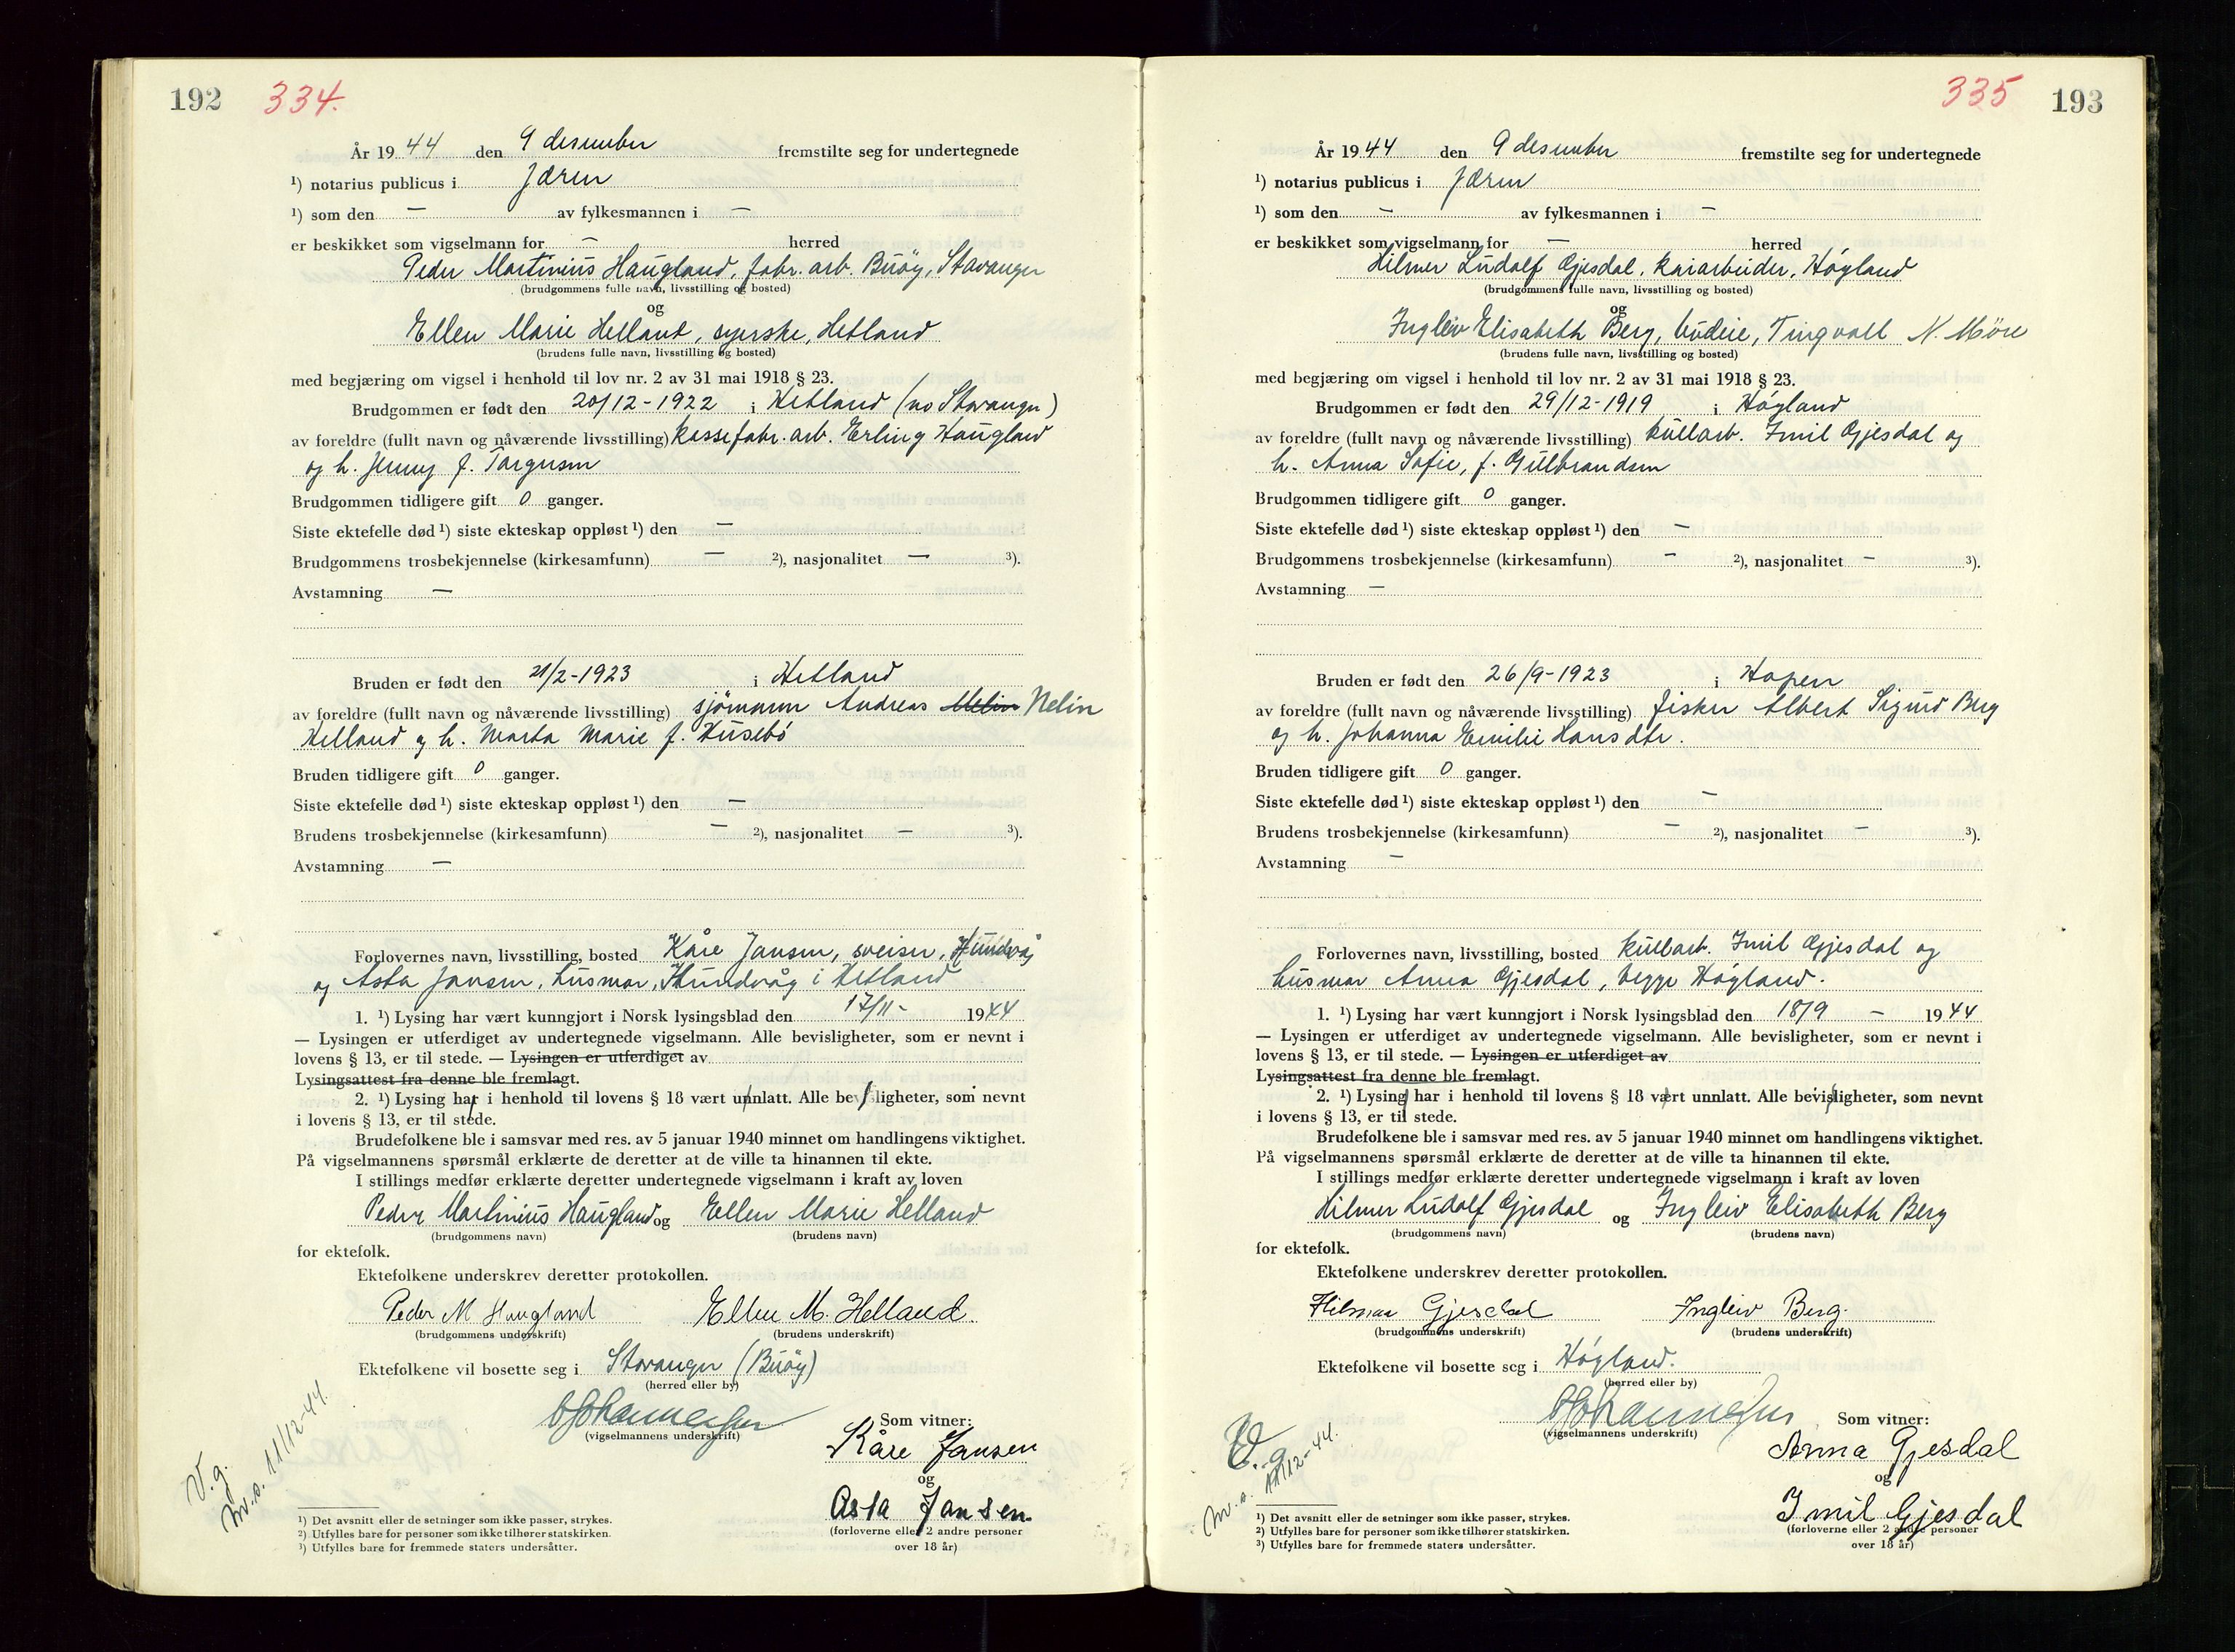 192 334.
År 1944 den 9 desember fremstilte seg for undertegnede
¹) notarius publicus i Jæren
¹) som den — av fylkesmannen i —
er beskikket som vigselmann for — herred
Peder Martinius Haugland, fabr. arb. Buøy, Stavanger
(brudgommens fulle navn, livsstilling og bosted)
og
Ellen Marie Helland, syerske, Hetland
(brudens fulle navn, livsstilling og bosted)
med begjæring om vigsel i henhold til lov nr. 2 av 31 mai 1918 § 23.
Brudgommen er født den 20/12-1922 i Hetland (no Stavanger)
av foreldre (fullt navn og nåværende livsstilling) kassefabr. arb. Erling Haugland
og h. Jenny f. Torgersen
Brudgommen tidligere gift 0 ganger.
Siste ektefelle død ¹) siste ekteskap oppløst ¹) den —
Brudgommens trosbekjennelse (kirkesamfunn) — ²), nasjonalitet — ³).
Avstamning —
Bruden er født den 21/2-1923 i Hetland
av foreldre (fullt navn og nåværende livsstilling) sjömann Andreas Melin Nelin
Helland og h. Marta Marie f. Husebö
Bruden tidligere gift 0 ganger.
Siste ektefelle død ¹) siste ekteskap oppløst ¹) den —
Brudens trosbekjennelse (kirkesamfunn) — ²), nasjonalitet — ³).
Avstamning —
Forlovernes navn, livsstilling, bosted Kåre Jansen, sveiser, Hundvåg
og Asta Jansen, husmor, Hundvåg i Hetland
1. ¹) Lysing har vært kunngjort i Norsk lysingsblad den 17/11 - 1944
— Lysingen er utferdiget av undertegnede vigselmann. Alle bevisligheter, som er nevnt i
lovens § 13, er til stede. — Lysingen er utferdiget av
Lysingsattest fra denne ble fremlagt.
2. ¹) Lysing har i henhold til lovens § 18 vært unnlatt. Alle bevisligheter, som nevnt
i lovens § 13, er til stede.
Brudefolkene ble i samsvar med res. av 5 januar 1940 minnet om handlingens viktighet.
På vigselmannens spørsmål erklærte de deretter at de ville ta hinannen til ekte.
I stillings medfør erklærte deretter undertegnede vigselmann i kraft av loven
Peder Martinius Haugland og Ellen Marie Helland
(brudgommens navn) (brudens navn)
for ektefolk.
Ektefolkene underskrev deretter protokollen.
Peder M Haugland Ellen M. Helland.
(brudgommens underskrift) (brudens underskrift)
Ektefolkene vil bosette seg i Stavanger (Buöy)
(herred eller by)
(vigselmannens underskrift)
Som vitner:
Kåre Jansen
og
Asta Jansen.
(forloverne eller 2 andre personer
over 18 år)
V.g.
m.s. 11/12-44.
¹) Det avsnitt eller de setninger som ikke passer, strykes.
²) Utfylles bare for personer som ikke tilhører statskirken.
³) Utfylles bare for fremmede staters undersåtter.
335 193
År 1944 den 9 desember fremstilte seg for undertegnede
¹) notarius publicus i Jæren
¹) som den — av fylkesmannen i —
er beskikket som vigselmann for — herred
Hilmer Ludolf Gjesdal, kaiarbeider, Högland
(brudgommens fulle navn, livsstilling og bosted)
og
Ingleiv Elisabeth Berg, budeie, Tingvoll N. Möre
(brudens fulle navn, livsstilling og bosted)
med begjæring om vigsel i henhold til lov nr. 2 av 31 mai 1918 § 23.
Brudgommen er født den 29/12-1919 i Högland
av foreldre (fullt navn og nåværende livsstilling) kullarb. Imil Gjesdal og
h. Anna Sofie, f. Gulbrandsen
Brudgommen tidligere gift 0 ganger.
Siste ektefelle død ¹) siste ekteskap oppløst ¹) den —
Brudgommens trosbekjennelse (kirkesamfunn) — ²), nasjonalitet — ³).
Avstamning —
Bruden er født den 26/9-1923 i Hopen
av foreldre (fullt navn og nåværende livsstilling) fisker Albert Sigurd Berg
og h. Johanna Emilie Hansdtr.
Bruden tidligere gift 0 ganger.
Siste ektefelle død ¹) siste ekteskap oppløst ¹) den —
Brudens trosbekjennelse (kirkesamfunn) — ²), nasjonalitet — ³).
Avstamning —
Forlovernes navn, livsstilling, bosted kullarb. Imil Gjesdal og
husmor Anna Gjesdal, begge Högland.
1. ¹) Lysing har vært kunngjort i Norsk lysingsblad den 18/9 — 1944
— Lysingen er utferdiget av undertegnede vigselmann. Alle bevisligheter, som er nevnt i
lovens § 13, er til stede. — Lysingen er utferdiget av
Lysingsattest fra denne ble fremlagt.
2. ¹) Lysing har i henhold til lovens § 18 vært unnlatt. Alle bevisligheter, som nevnt
i lovens § 13, er til stede.
Brudefolkene ble i samsvar med res. av 5 januar 1940 minnet om handlingens viktighet.
På vigselmannens spørsmål erklærte de deretter at de ville ta hinannen til ekte.
I stillings medfør erklærte deretter undertegnede vigselmann i kraft av loven
Hilmer Ludolf Gjesdal og Ingleiv Elisabeth Berg
(brudgommens navn) (brudens navn)
for ektefolk.
Ektefolkene underskrev deretter protokollen.
Hilmar Gjesdal Ingleiv Berg.
(brudgommens underskrift) (brudens underskrift)
Ektefolkene vil bosette seg i Högland.
(herred eller by)
(vigselmannens underskrift)
Som vitner:
Anna Gjesdal
og
Imil Gjesdal
(forloverne eller 2 andre personer
over 18 år)
V.g.
m.s. 11/12-44.
¹) Det avsnitt eller de setninger som ikke passer, strykes.
²) Utfylles bare for personer som ikke tilhører statskirken.
³) Utfylles bare for fremmede staters undersåtter.